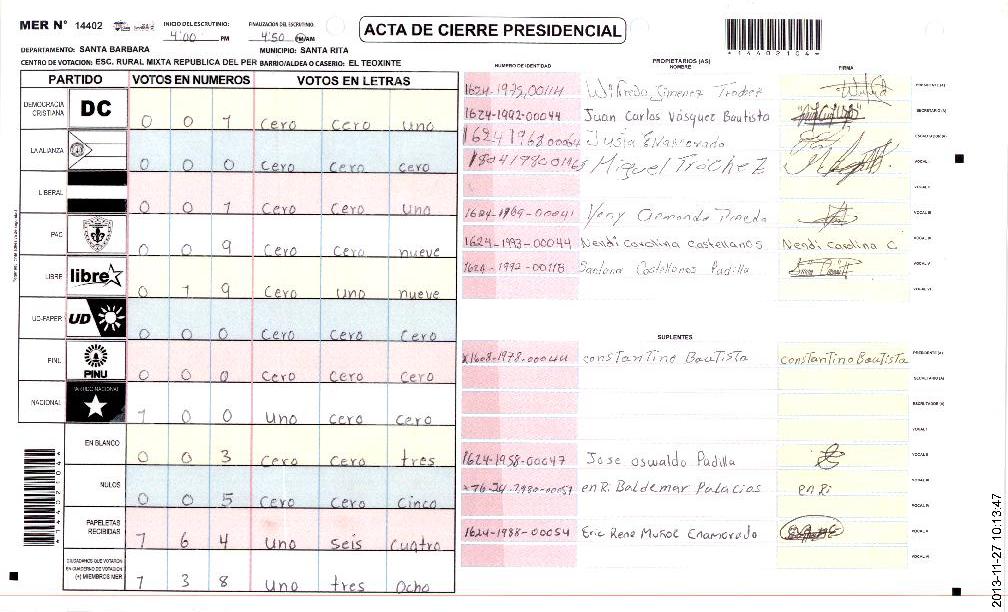 MER N° 14402
INICIO DEL ESCRUTINIO: 4:00 PM
FINALIZACION DEL ESCRUTINIO: 4:50 AM
ACTA DE CIERRE PRESIDENCIAL
*14402104*
DEPARTAMENTO: SANTA BARBARA
MUNICIPIO: SANTA RITA
CENTRO DE VOTACION: ESC. RURAL MIXTA REPUBLICA DEL PER BARRIO/ALDEA O CASERIO: EL TEOXINTE
PARTIDO VOTOS EN NUMEROS VOTOS EN LETRAS
DEMOCRACIA CRISTIANA DC 0 0 1 cero cero uno
LA ALIANZA 0 0 0 cero cero cero
LIBERAL 0 0 1 cero cero uno
PAC 0 0 9 cero cero nueve
LIBRE libre 0 1 9 cero uno nueve
UD-FAPER UD 0 0 0 cero cero cero
PINU PINU 0 0 0 cero cero cero
NACIONAL PARTIDO NACIONAL 1 0 0 uno cero cero
EN BLANCO 0 0 3 cero cero tres
NULOS 0 0 5 cero cero cinco
PAPELETAS RECIBIDAS 1 6 4 uno seis cuatro
CIUDADANOS QUE VOTARON EN CUADERNO DE VOTACION (+) MIEMBROS MER 1 3 8 uno tres ocho
*14402104*
NUMERO DE IDENTIDAD PROPIETARIOS (AS) NOMBRE FIRMA
1624-1975,00114 Wilfredo Jimenez Trochez PRESIDENTE (A)
1624-1992-00044 Juan Carlos Vásquez Bautista SECRETARIO (A)
1624 1968 00064 ESCRUTADOR (A)
1804198001968 Miguel Tróchez VOCAL I
VOCAL II
1624-1969-00041 Yeny Armando Pineda VOCAL III
1624-1993-00044 Nendi Carolina Castellanos Nendi Carolina C. VOCAL IV
1624-1992-00118 Santana Castellanos Padilla VOCAL V
VOCAL VI
SUPLENTES
1608-1978-00044 constantino Bautista constantino Bautista PRESIDENTE (A)
SECRETARIO (A)
ESCRUTADOR (A)
VOCAL I
1624-1958-00047 Jose oswaldo Padilla VOCAL II
enRi Baldemar Palacios enRi VOCAL III
VOCAL IV
1624-1988-00054 Eric Rene Muñoz Enamorado VOCAL V
VOCAL VI
2013-11-27 10:13:47